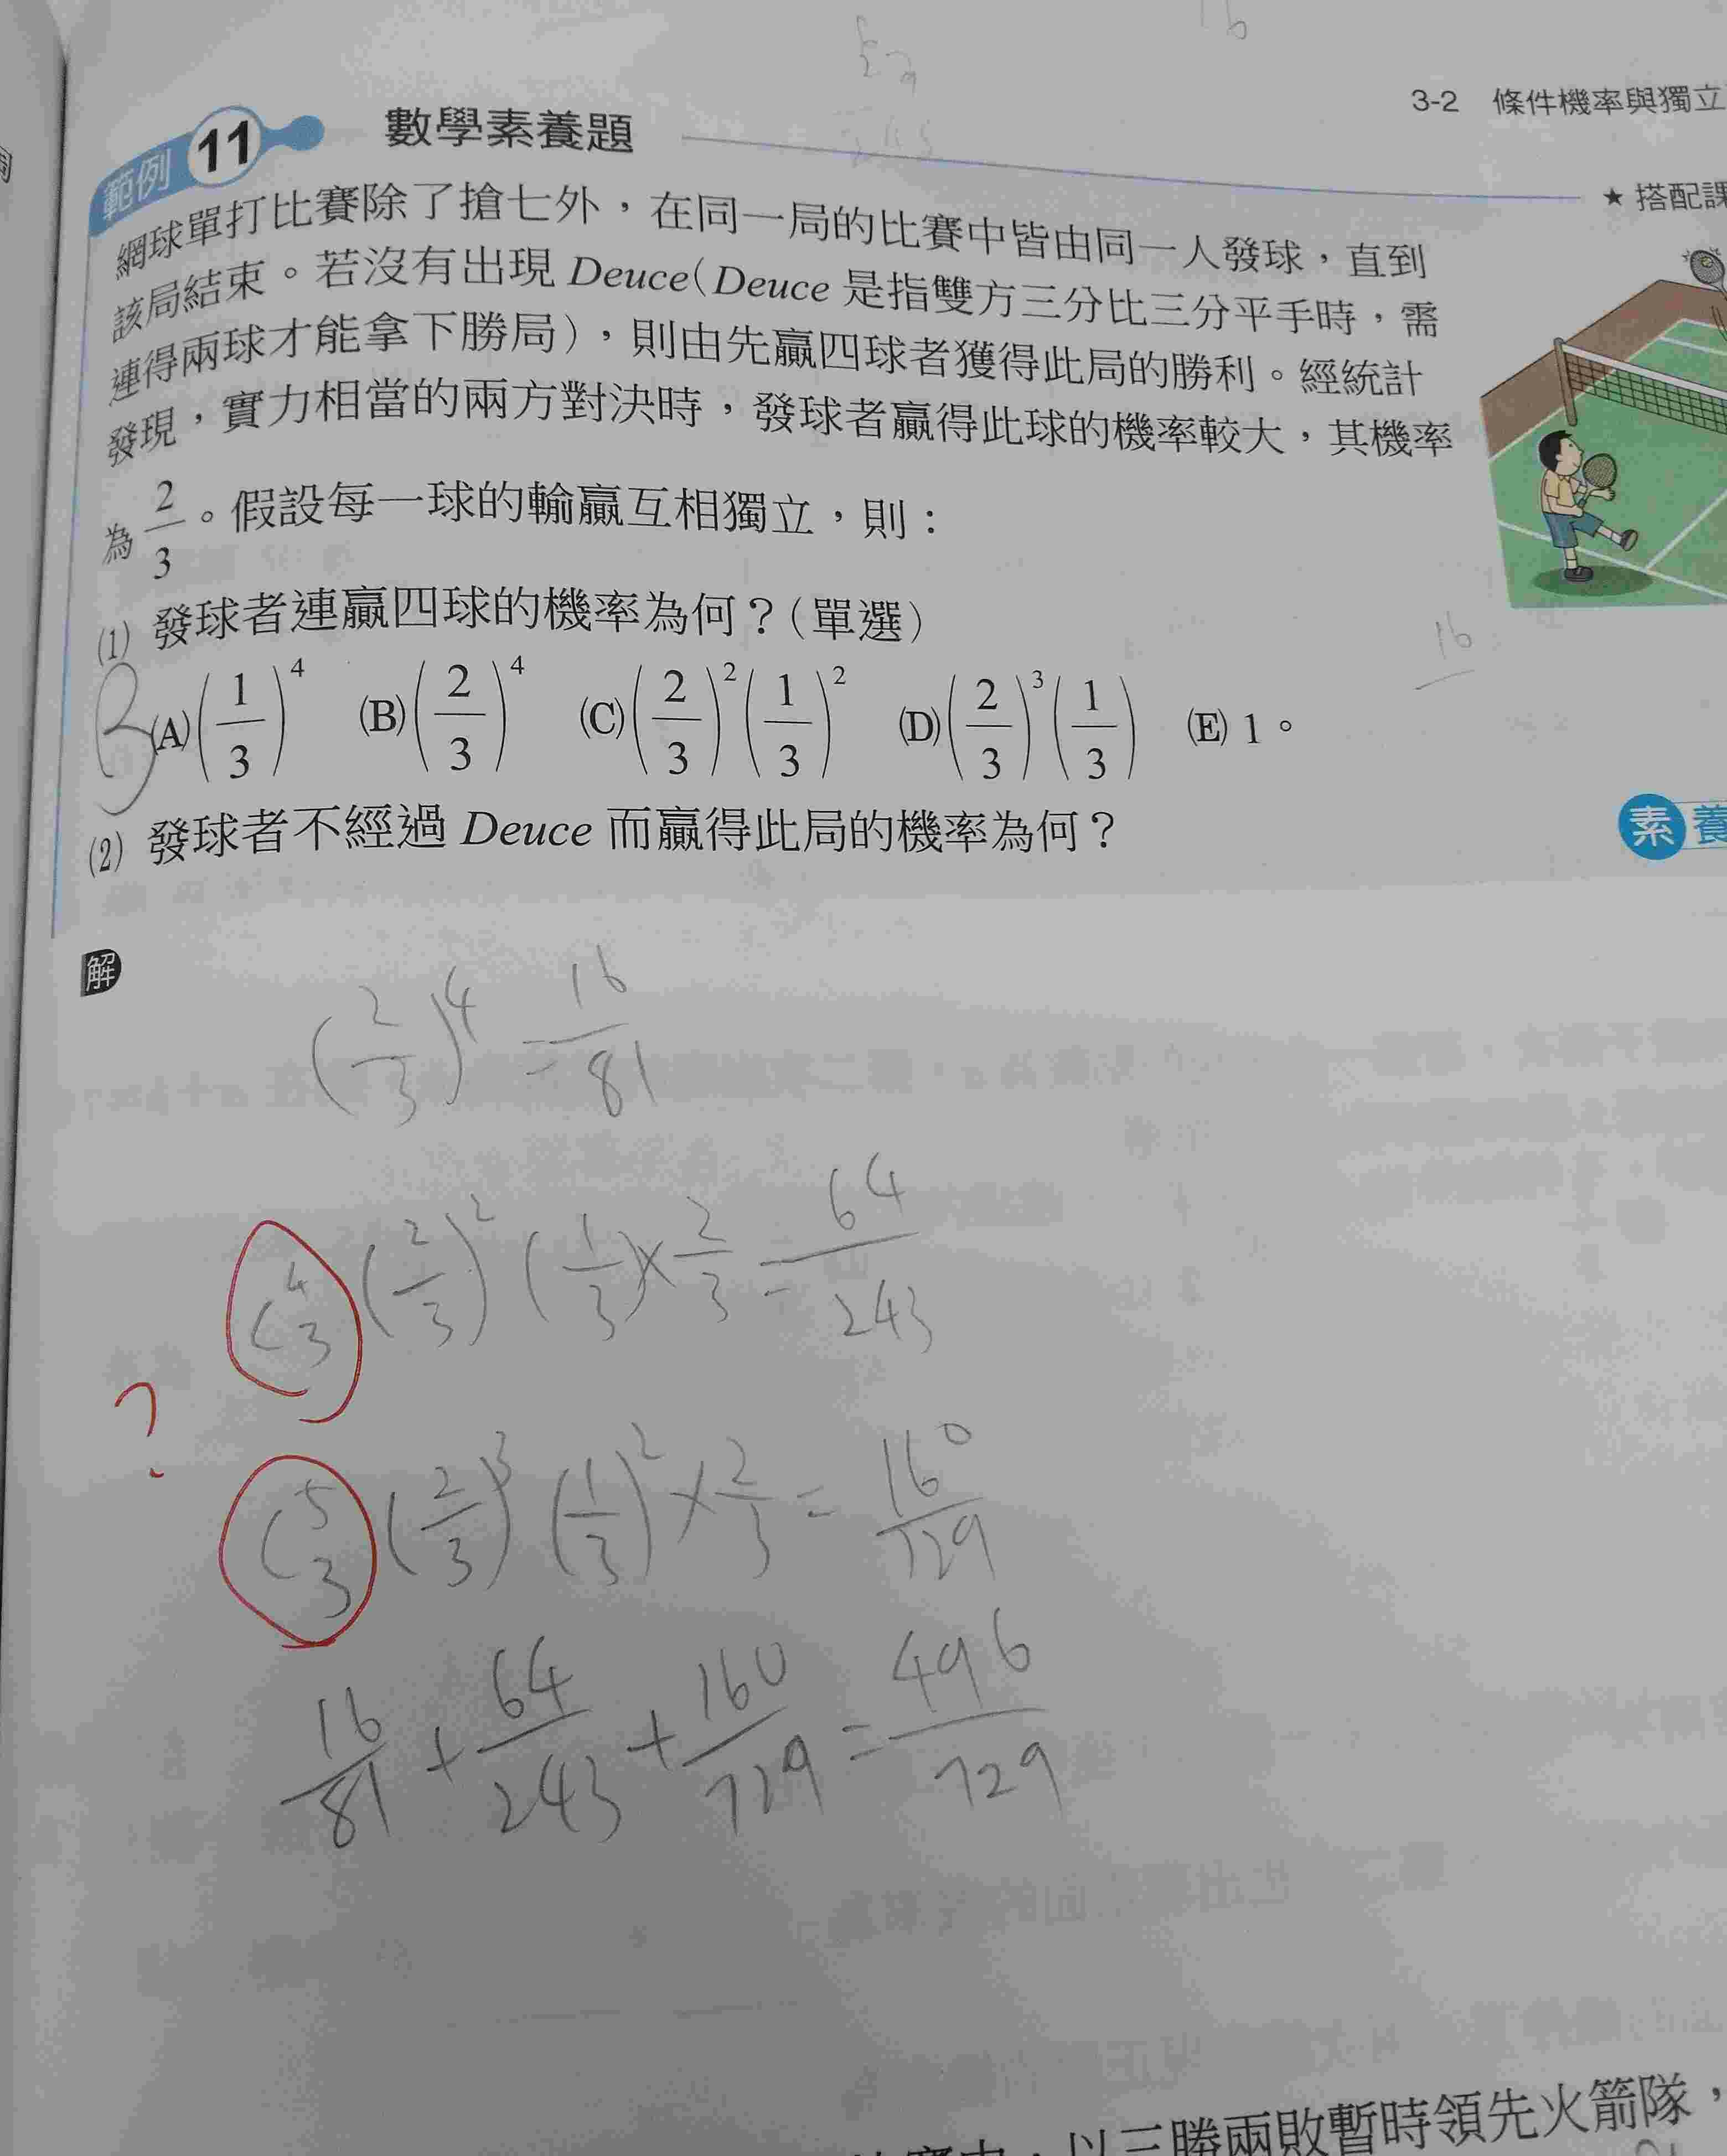 3-2 條件機率與獨立
範例 11 數學素養題
★ 搭配課
網球單打比賽除了搶七外，在同一局的比賽中皆由同一人發球，直到
該局結束。若沒有出現 Deuce(Deuce 是指雙方三分比三分平手時，需
連得兩球才能拿下勝局)，則由先贏四球者獲得此局的勝利。經統計
發現，實力相當的兩方對決時，發球者贏得此球的機率較大，其機率
為 2/3。假設每一球的輸贏互相獨立，則：
(1) 發球者連贏四球的機率為何？(單選)
B
(A)(1/3)^4 (B)(2/3)^4 (C)(2/3)^2(1/3)^2 (D)(2/3)^3(1/3) (E) 1。
16
(2) 發球者不經過 Deuce 而贏得此局的機率為何？
素養
解
(2/3)^4 = 16/81
C^4_3 (2/3)^2 (1/3) × 2/3 = 64/243
?
C^5_3 (2/3)^3 (1/3)^2 × 2/3 = 160/729
16/81 + 64/243 + 160/729 = 496/729
，以三勝兩敗暫時領先火箭隊，